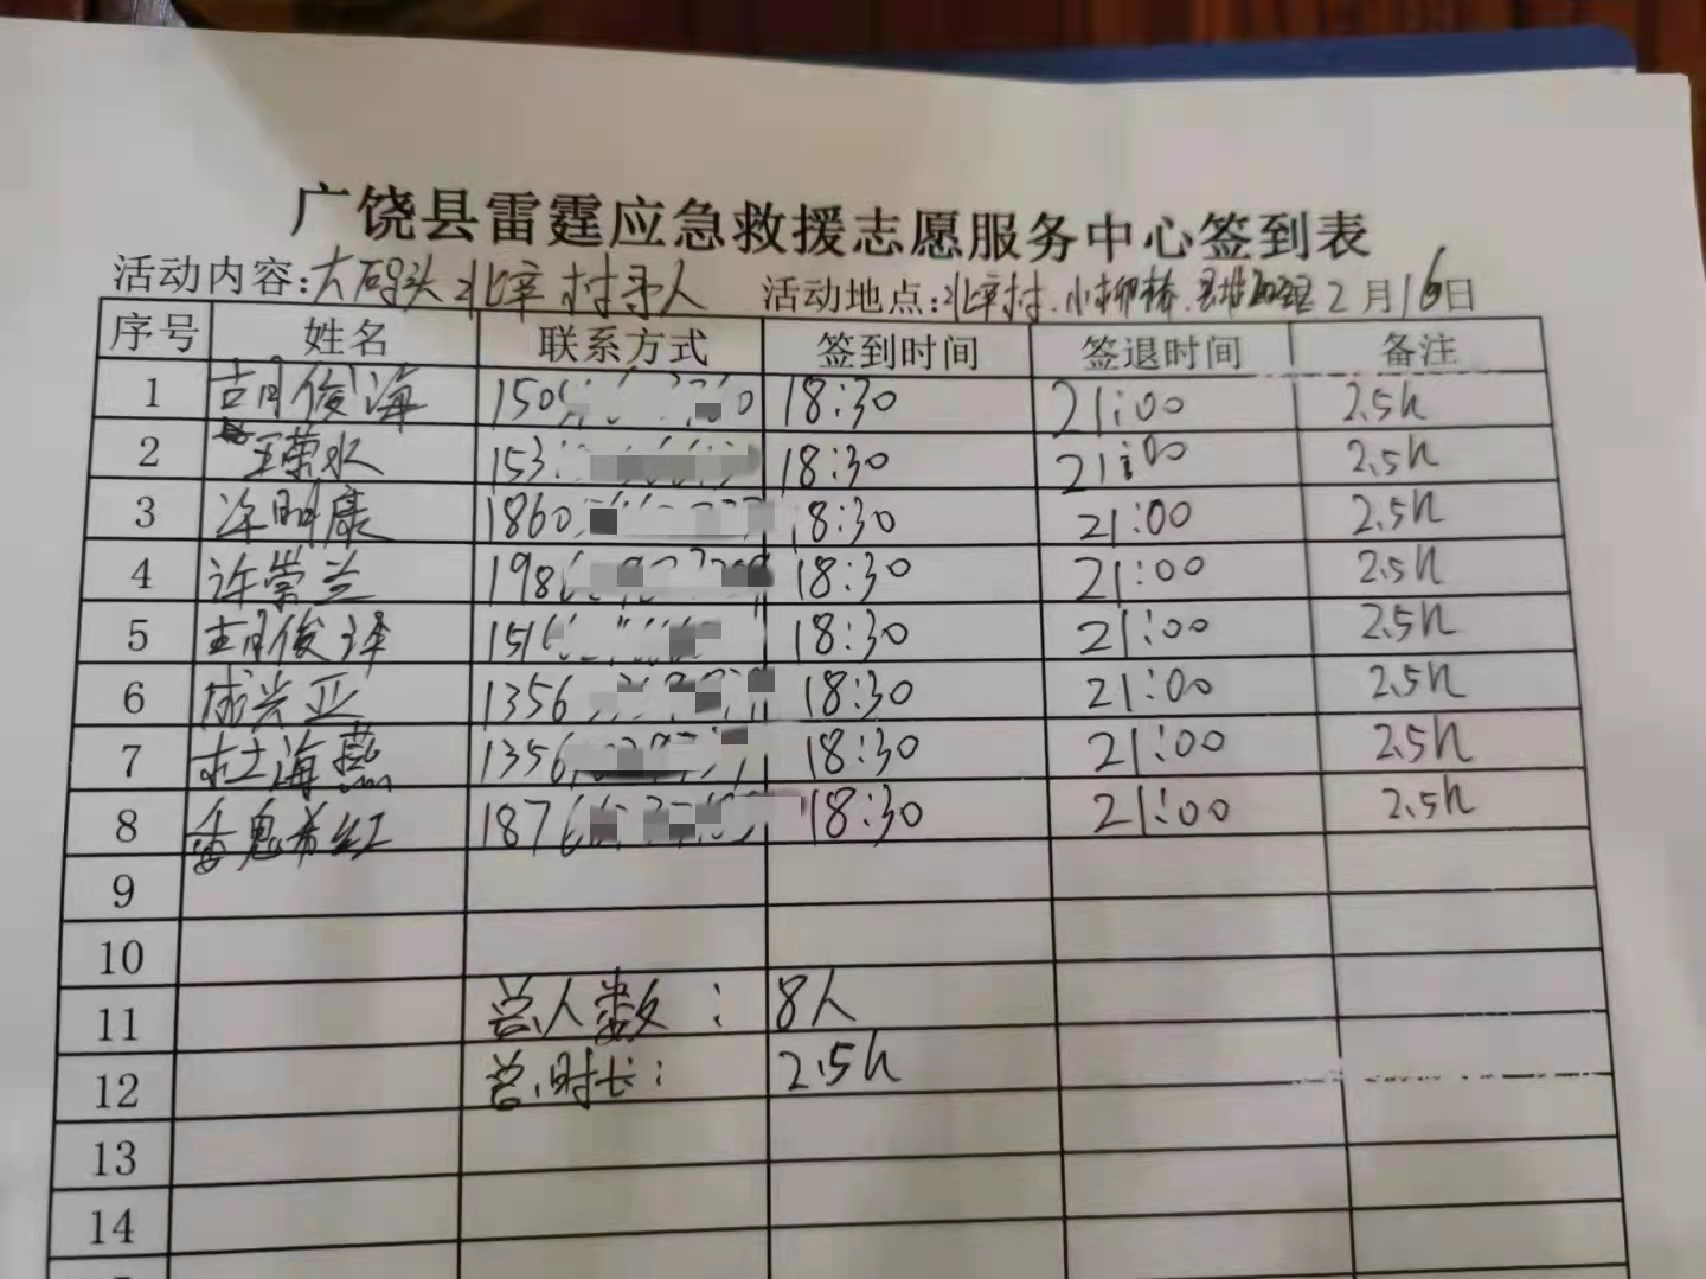 广饶县雷霆应急救援志愿服务中心签到表
活动内容:大码头北辛村寻人 活动地点:北辛村.小柳桥. 2月16日
序号 姓名 联系方式 签到时间 签退时间 备注
1 胡俊海 150 0 18:30 21:00 2.5h
2 王荣水 153 18:30 21:00 2.5h
3 明康 1860 18:30 21:00 2.5h
4 许崇兰 198 18:30 21:00 2.5h
5 胡俊泽 151 18:30 21:00 2.5h
6 成兴亚 1356 18:30 21:00 2.5h
7 杜海燕 1356 18:30 21:00 2.5h
8 红 1876 18:30 21:00 2.5h
9
10
11 总人数: 8人
12 总时长: 2.5h
13
14